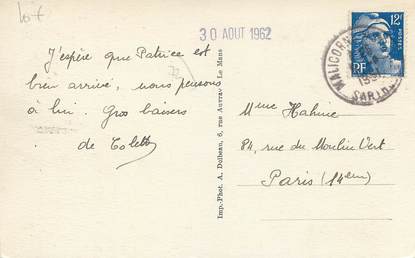 lot
30 AOUT 1962
12F
POSTES
RF
MALICORN
SARTHE
J'espère que Patrice est
bien arrivé, nous pensons
à lui. Gros baisers
de Colette
Imp.-Phot. A. Dolbeau, 6, rue Auvray Le Mans
Mme Hahine
84, rue du Moulin Vert
Paris (14em)